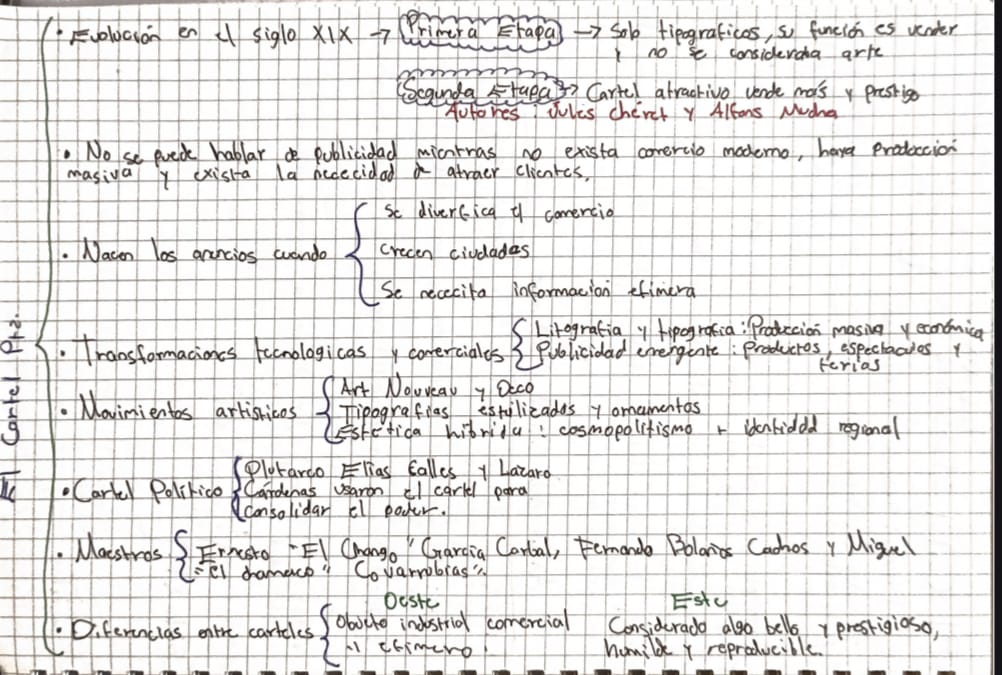 El Cartel Pt2.
· Evolución en el siglo XIX → Primera Etapa → Solo tipograficos, su función es vender
y no se considerata arte
Segunda Etapa → Cartel atractivo vende más y prestigo
Autores: Jules Chéret y Alfons Mucha
· No se puede hablar de publicidad mientras no exista comercio moderno, haya Producción
masiva y exista la nececidad de atraer clientes.
· Nacen los anuncios cuando
Se diverfica el comercio
Crecen ciudades
Se nececita información efimera
· Transformaciones tecnologicas y comerciales
Litografia y tipografia: Producción masiva y económica
Publicidad emergente: Productos, espectaculos y
ferias
· Movimientos artisticos
Art Nouveau y Deco
Tipografias estilizados y ornamentos
Estética hibrida: cosmopolitismo + identidad regional
· Cartel Político
Plutarco Elias Calles y Lazaro
Cárdenas usaron el cartel para
consolidar el poder.
· Maestros
Ernesto "El Chango" Garcia Cabral, Fernando Bolaños Cachos y Miguel
"El chamaco" Covarrubias".
· Diferencias entre carteles
Oeste
Objeto industrial comercial
y efimero.
Este
Considerado algo bello y prestigioso,
humilde y reproducible.